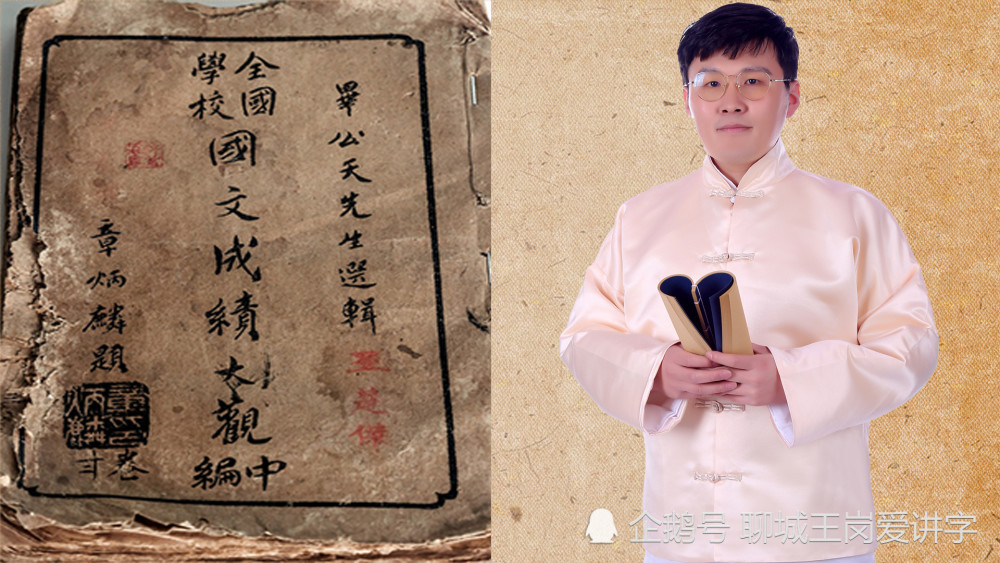 畢公天先生選輯
全國
學校
國文成績大觀
中編
章炳麟題
卷
企鹅号 聊城王岗爱讲字